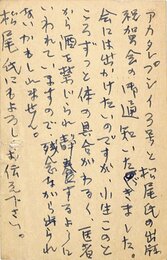 アカタレプシイ3号と松尾氏の出版
祝賀会の御通知いたゞきました。
会には出かけたいのですが小生このと
ころずつと体の具合がわるく、医者
から酒を禁じられ静養するように
いわれていますので残念ながら出られ
ないかもしれません。
松尾氏にもよろしくお伝え下さい。